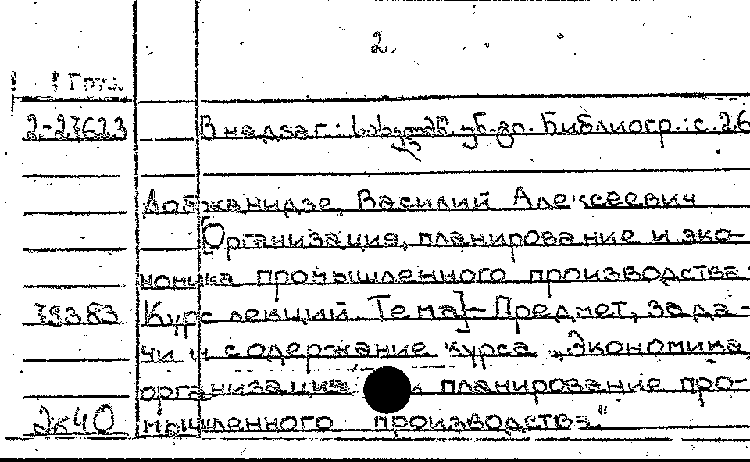 2.
2-27623 В надзаг.: учб.гр. Библиогр.: с. 26
Лобжанидзе, Василий Алексеевич
[Организация, планирование и эко-
номика промышленного производства:
79383 Курс лекций. Тема] - Предмет, зада-
чи и содержание курса „Экономика
организация и планирование про-
2к40 мышленного производства."